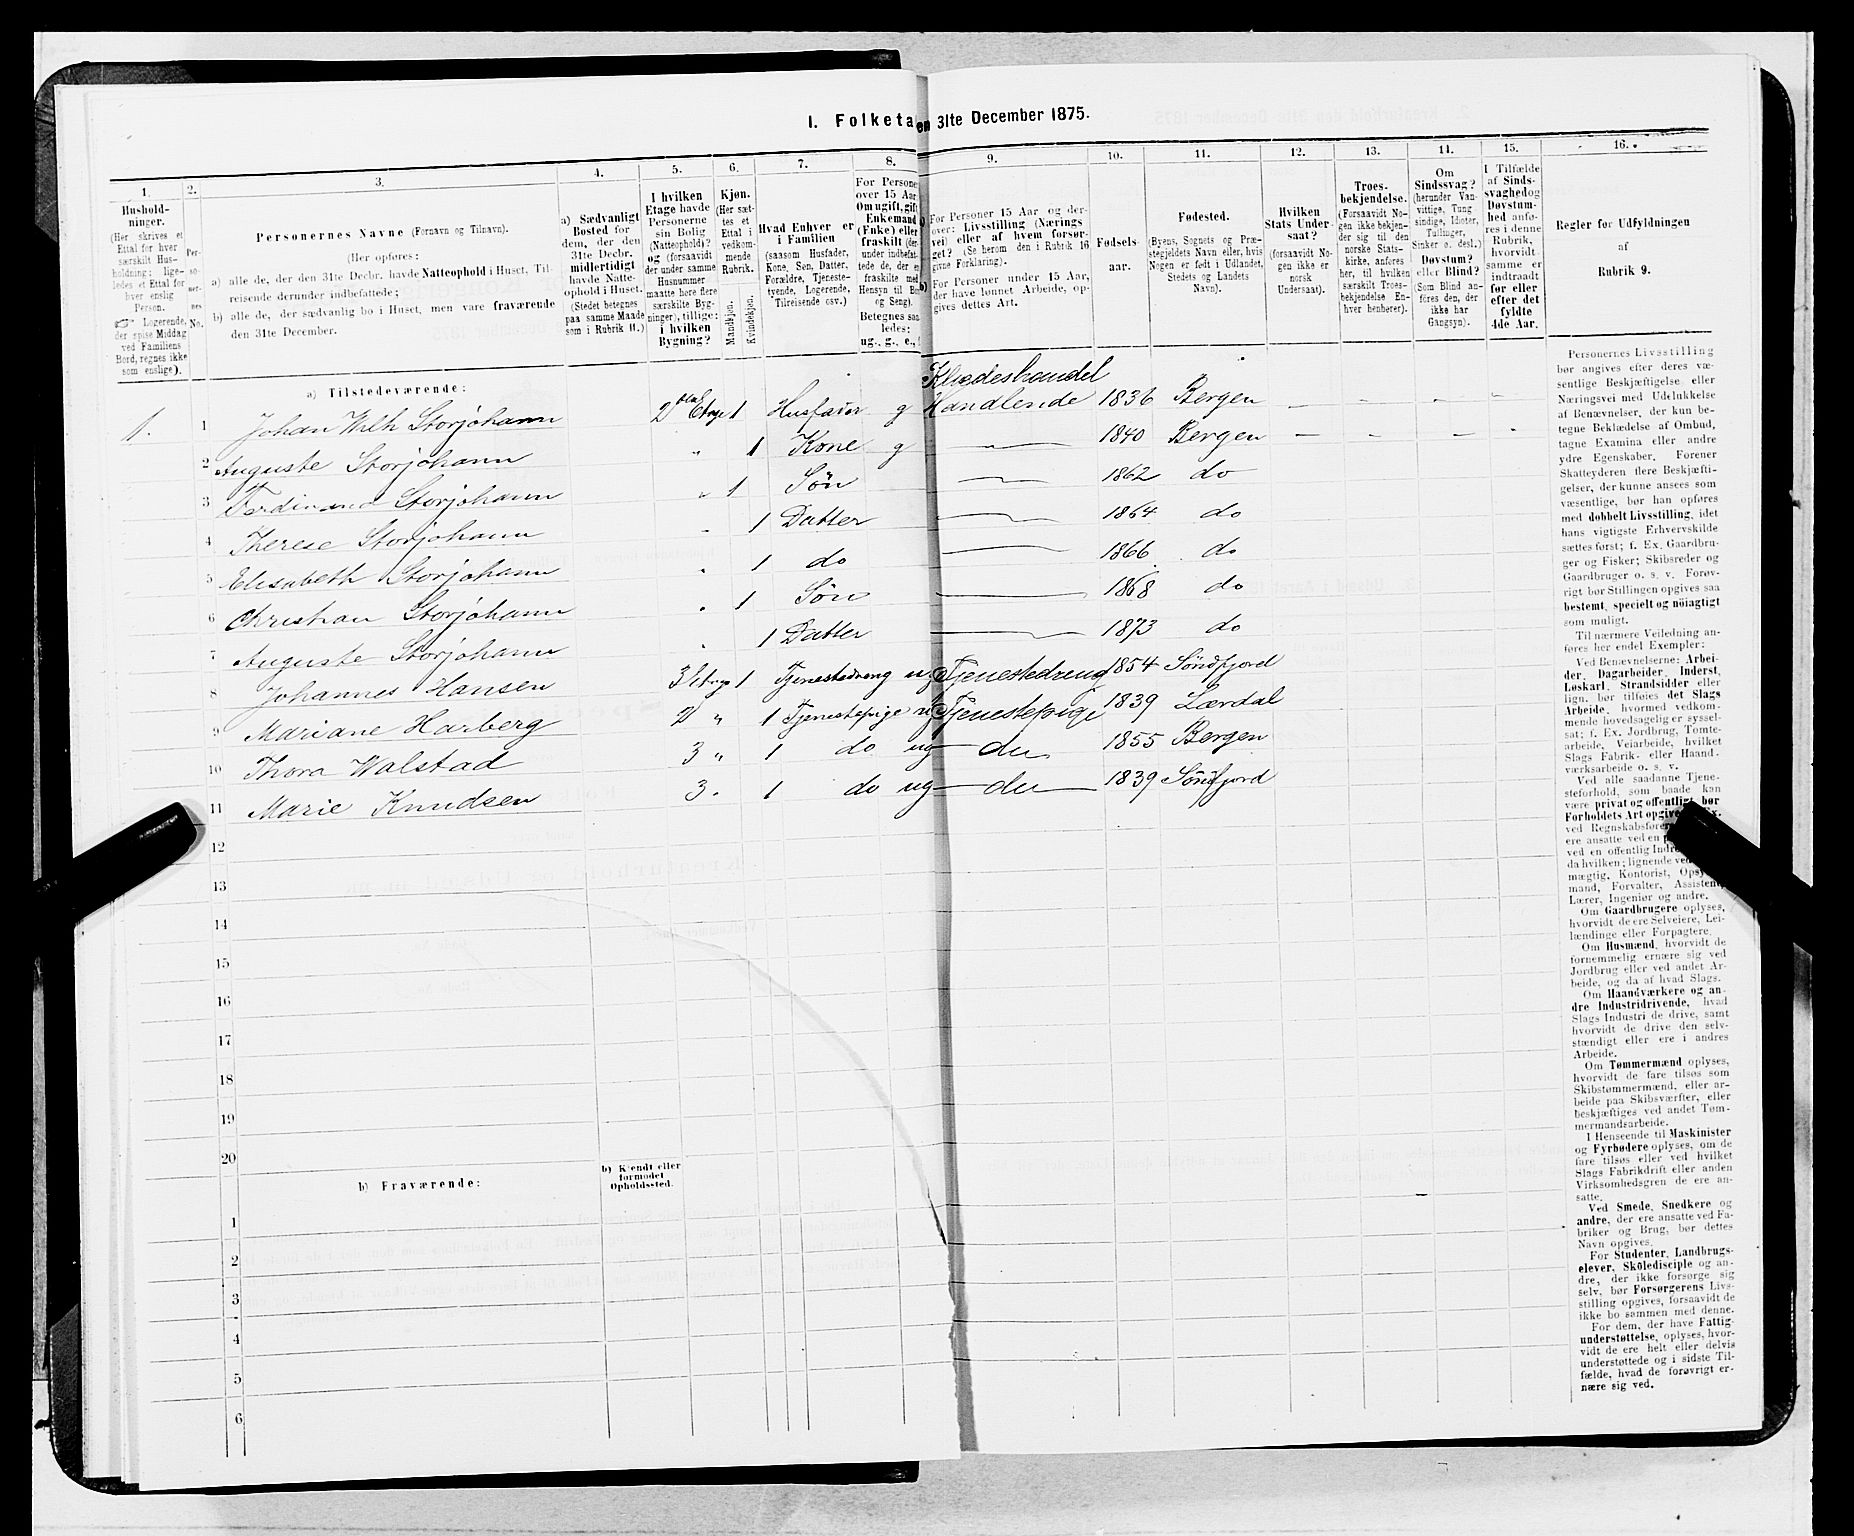 1. Folketa en 31te December 1875.
1. 2. 3. 4. 5. 6. 7. 8. 9. 10. 11. 12. 13. 14. 15. 16.
Hushold-
ninger.
(Her skrives et
Ettal for hver
særskilt Hus-
holdning; lige-
ledes et Ettal for
hver enslig
Person.
☞ Logerende,
der spise Middag
ved Familiens
Bord, regnes ikke
som enslige).
Per-
so-
ner-
nes
No.
Personernes Navne (Fornavn og Tilnavn).
(Her opføres:
a) alle de, der den 31te Decbr. havde Natteophold i Huset, Til-
reisende derunder indbefattede;
b) alle de, der sædvanlig bo i Huset, men vare fraværende
den 31te December.
a) Sædvanligt
Bosted for
dem, der den
31te Decbr.
midlertidigt
havde Natte-
ophold i Huset.
(Stedet betegnes
paa samme Maade
som i Rubrik 11.)
I hvilken
Etage havde
Personerne
sin Bolig
(Natteophold)?
og (forsaavidt
der under samme
Husnummer
maatte høre flere
særskilte Byg-
ninger), tillige:
i hvilken
Bygning?
Kjøn.
(Her sæt-
tes et
Ettal i
vedkom-
mende
Rubrik.
Mandkjøn.
Kvindekjøn.
Hvad Enhver er
i Familien
(saasom Husfader,
Kone, Søn, Datter,
Forældre, Tjeneste-
tyende, Logerende,
Tilreisende osv.)
For Persone
over 15 Aar
Om ugift, gift
Enkemand
(Enke) eller
fraskilt (der
under indbefat-
tede de, der e
fraskilte med
Hensyn til Bo
og Seng).
Betegnes saa
ledes:
ug., g., e.,
For Personer 15 Aar og der-
over: Livsstilling (Nærings
vei) eller af hvem forsør-
get? (Se herom den i Rubrik 16
givne Forklaring).
For Personer under 15 Aar,
der have lønnet Arbeide, op-
gives dettes Art.
Fødsels-
aar.
Fødested.
(Byens, Sognets og Præ-
stegjeldets Navn eller, hvis
Nogen er født i Udlandet,
Stedets og Landets
Navn).
Hvilken
Stats Under-
saat?
(forsaavidt No-
gen ikke er
norsk
Undersaat).
Troes-
bekjendelse.
(Forsaavidt No-
gen ikke bekjen-
der sig til den
norske Stats-
kirke, anføres
her, til hvilken
særskilt Troes-
bekjendelse En-
hver henhører).
Om
Sindssvag?
(herunder Van-
vittige, Tung
sindige, Idioter,
Tullinger,
Sinker o. desl.)
Døvstum?
eller Blind?
(Som Blind an-
føres den, der
ikke har
Gangsyn).
I Tilfælde
af Sinds-
svaghed og
Døvstum-
hed anfø-
res i denne
Rubrik,
hvorvidt
samme er
indtraadt
før eller
efter det
fyldte
4de Aar.
Regler for Udfyldningen
af
Rubrik 9.
a) Tilstedeværende:
Klædeshandel
1. 1 Johan Wilh Storjohann 2den Etage 1 Husfader g Handlende 1836 Bergen — - - - -
2 Auguste Storjohann " 1 Kone g — 1840 Bergen — - - — -
3 Ferdinand Storjohann " 1 Søn — 1862 do
4 Therese Storjohann " 1 Datter — 1864 do
5 Elisabeth Storjohann " 1 do — 1866 do
6 Christian Storjohann " 1 Søn — 1868 do
7 Auguste Storjohann " 1 Datter — 1873 do
8 Johannes Hansen 3 Etage 1 Tjenestedreng ug Tjenestedreng 1854 Söndfjord
9 Mariane Harberg 2 " 1 Tjenestepige ug Tjenestepige 1839 Lærdal
10 Thora Walstad 3 " 1 do ug — do 1855 Bergen
11 Marie Knudsen 3 " 1 do ug — do — 1839 Söndfjord
12
13
14
15
16
17
18
19
20
b) Fraværende:
b) Kjendt eller
formodet
Opholdssted.
1
2
3
4
5
6
Personernes Livsstilling
bør angives efter deres væ-
sentlige Beskjæftigelse eller
Næringsvei med Udelukkelse
af Benævnelser, der kun be-
tegne Beklædelse af Ombud,
tagne Examina eller andre
ydre Egenskaber. Forener
Skatteyderen flere Beskjæfti-
gelser, der kunne ansees som
væsentlige, bør han opføres
med dobbelt Livsstilling, idet
hans vigtigste Erhvervskilde
sættes først; f. Ex. Gaardbru-
ger og Fisker; Skibsreder og
Gaardbruger o. s. v. Forøv-
rigt bør Stillingen opgives saa
bestemt, specielt og nöiagtigt
som muligt.
Til nærmere Veiledning an-
føres her endel Exempler:
Ved Benævnelserne: Arbei-
der, Dagarbeider, Inderst,
Løskarl, Strandsidder eller
lign. bør tilføies det Slags
Arbeide, hvormed vedkom-
mende hovedsagelig er syssel-
sat; f. Ex. Jordbrug, Tomte-
arbeide, Veiarbeide, hvilket
Slags Fabrik- eller Haand-
værksarbeide o. s. v.
Ved alle saadanne Tjene-
steforhold, som baade kan
være privat og offentligt, bør
Forholdets Art opgives.
ved Regnskabsføre
ere ansatte ved en
ved en offentlig Indre
da hvilken; lignende ved
mægtig, Kontorist, Opsy
mand, Forvalter, Assistent,
Lærer, Ingeniør og andre.
Om Gaardbrugere oplyses,
hvorvidt de ere Selveiere, Lei-
lændinge eller Forpagtere.
Om Husmænd, hvorvidt de
fornemmelig ernære sig ved
Jordbrug eller ved andet Ar-
beide, og da af hvad Slags.
Om Haandværkere og an-
dre Industridrivende, hvad
Slags Industri de drive, samt
hvorvidt de drive den selv-
stændigt eller ere i andres
Arbeide.
Om Tømmermænd oplyses,
hvorvidt de fare tilsøs som
Skibstømmermænd, eller ar-
beide paa Skibsværfter, eller
beskjæftiges ved andet Tøm-
mermandsarbeide.
I Henseende til Maskinister
og Fyrbødere oplyses, om de
fare tilsøs eller ved hvilket
Slags Fabrikdrift eller anden
Virksomhedsgren de ere an-
satte.
Ved Smede, Snedkere og
andre, der ere ansatte ved Fa-
briker og Brug, bør dettes
Navn opgives.
For Studenter, Landbrugs-
elever, Skoledisciple og an-
dre, der ikke forsørge sig
selv, bør Forsørgerens Livs-
stilling opgives, forsaavidt de
ikke bo sammen med denne.
For dem, der have Fattig-
understøttelse, oplyses, hvor-
vidt de ere helt eller delvis
understøttede og i sidste Til-
fælde, hvad de forøvrigt er-
nære sig ved.